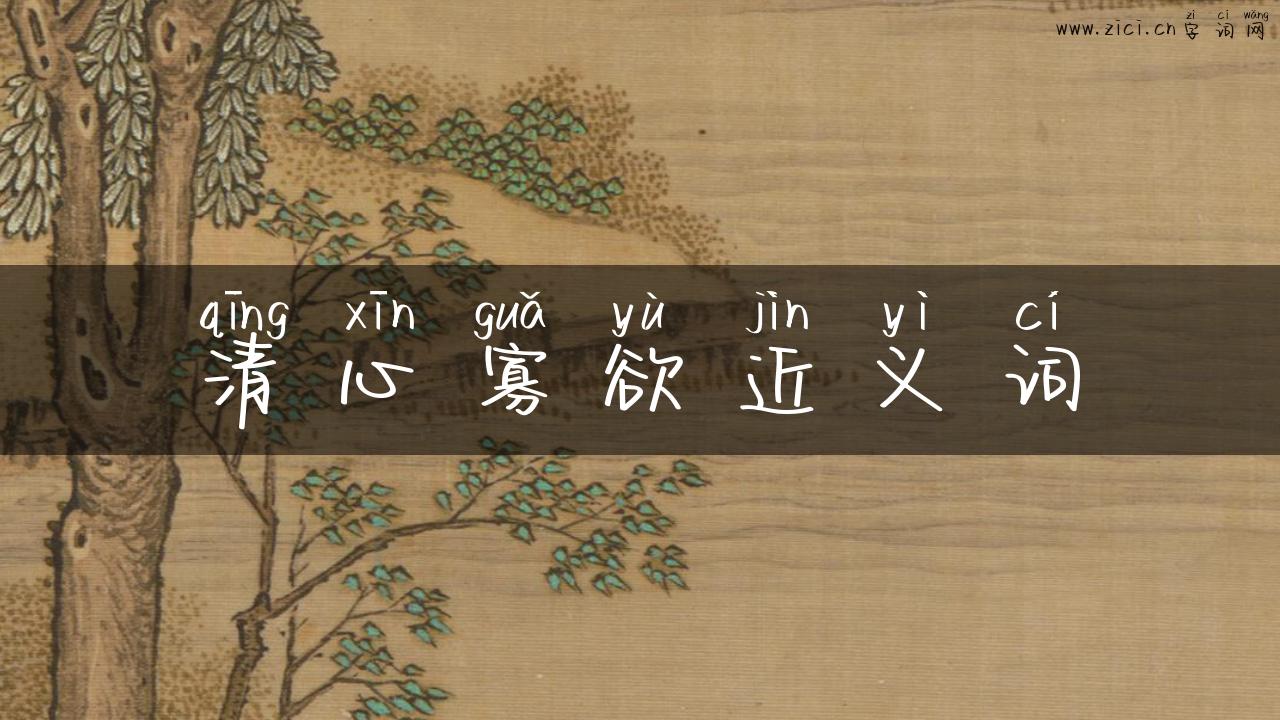 zì cí wǎng
www.zici.cn 字词网
qīng xīn guǎ yù jìn yì cí
清心寡欲近义词